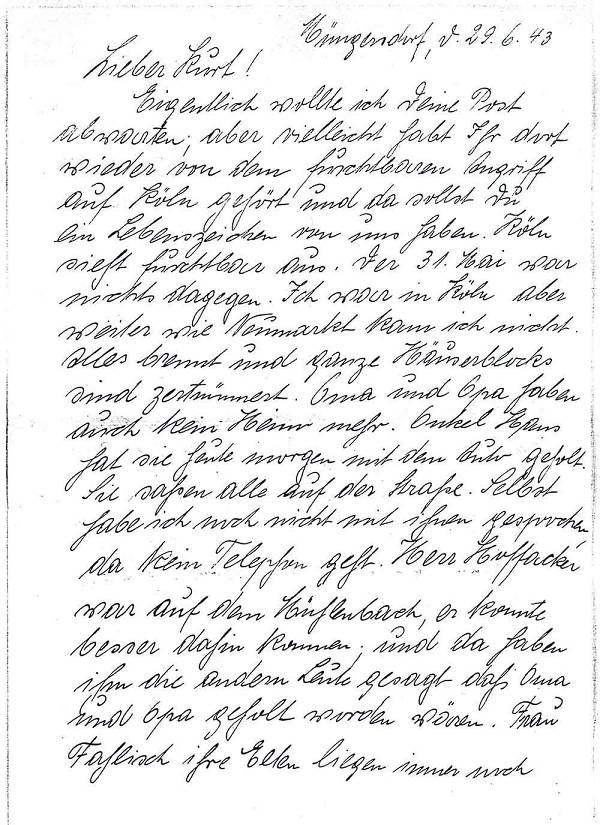 Müngersdorf, d. 29.6.43
Lieber Kurt!
Eigentlich wollte ich Deine Post
abwarten, aber vielleicht habt Ihr dort
wieder von dem furchtbaren Angriff
auf Köln gehört und da sollst Du
ein Lebenszeichen von uns haben. Köln
sieht furchtbar aus. Der 31. Mai war
nichts dagegen. Ich war in Köln aber
weiter wie Neumarkt kam ich nicht.
Alles brennt und ganze Häuserblocks
sind zertrümmert. Oma und Opa haben
auch kein Heim mehr. Onkel Hans
hat sie heute morgen mit dem Auto geholt.
Sie saßen alle auf der Straße. Selbst
habe ich noch nicht mit ihnen gesprochen
da kein Telephon geht. Herr Hoffacker
war auf dem Mühlenbach, er konnte
besser dahin kommen, und da haben
ihm die andern Leute gesagt daß Oma
und Opa geholt worden wären. Frau
Fahlisch ihre Eltern liegen immer noch